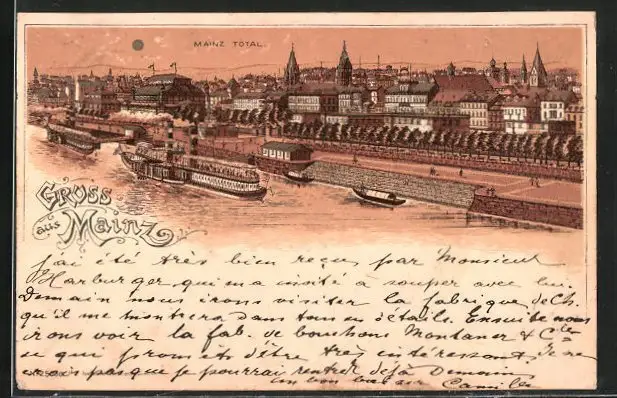 MAINZ TOTAL.
GRUSS
aus Mainz
j'ai été très bien reçu par Monsieur
Harburger qui m'a invité à souper avec lui.
Demain nous irons visiter la fabrique de Ch.
qu'il me montrera dans tous ses détails. Ensuite nous
irons voir la fab. de bouchons Montaner & Cie
ce qui promet d'être très intéressant. Je ne
crois pas que je pourrai rentrer déjà Demain
un bon baiser Camille